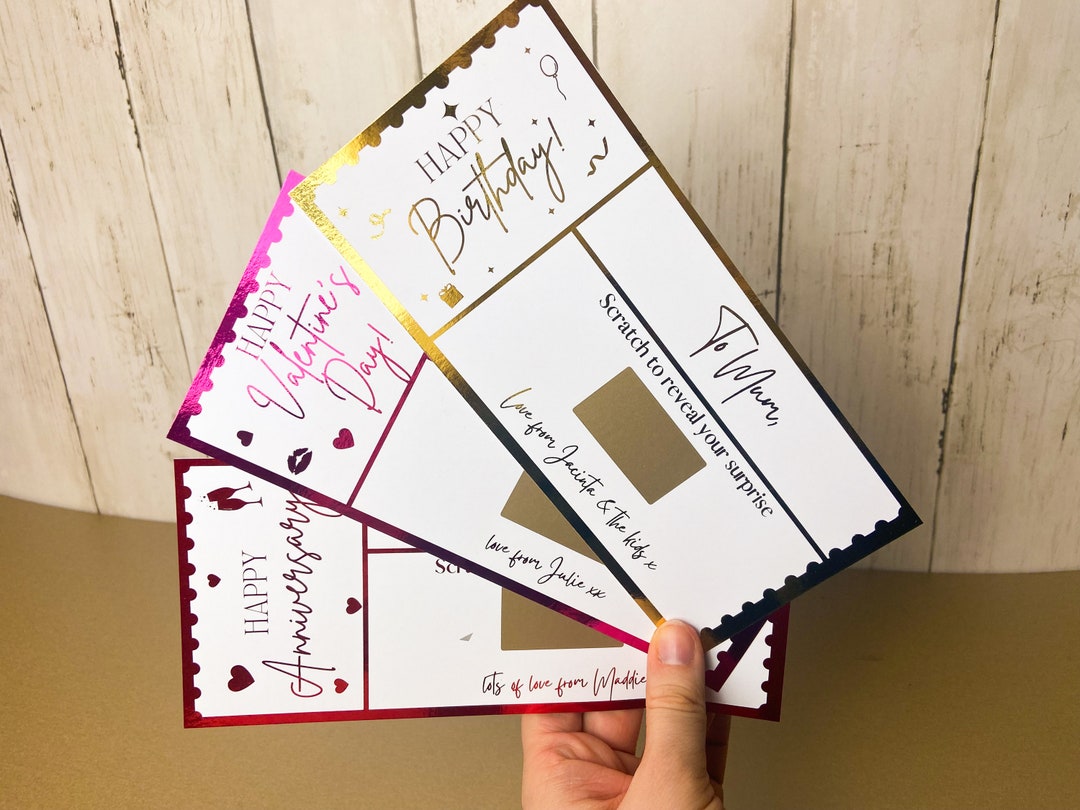 HAPPY
Birthday!
To Mum,
Scratch to reveal your surprise
Love from Jacinta & the kids x
HAPPY
Valentine's
Day!
love from Julie xx
HAPPY
Anniversary
lots of love from Maddie